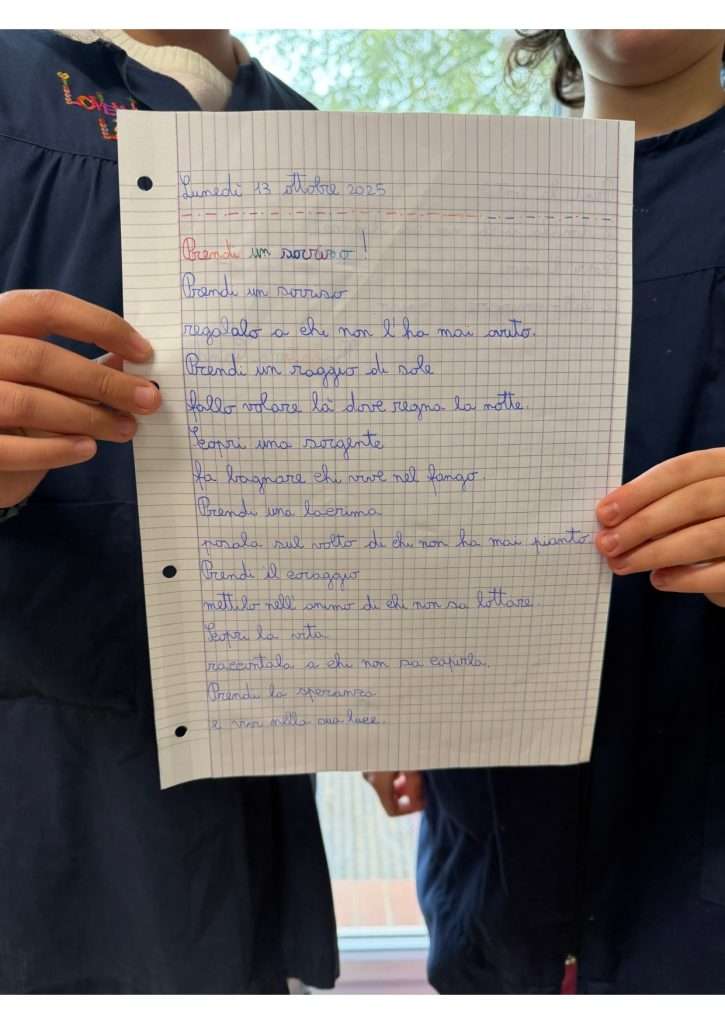 LOVEN
Lunedì 13 ottobre 2025
Prendi un sorriso!
Prendi un sorriso
regalalo a chi non l'ha mai avuto.
Prendi un raggio di sole
fallo volare là dove regna la notte.
Scopri una sorgente
fa bagnare chi vive nel fango.
Prendi una lacrima
posala sul volto di chi non ha mai pianto.
Prendi il coraggio
mettilo nell'animo di chi non sa lottare.
Scopri la vita
raccontala a chi non sa capirla.
Prendi la speranza
e vivi nella sua luce.